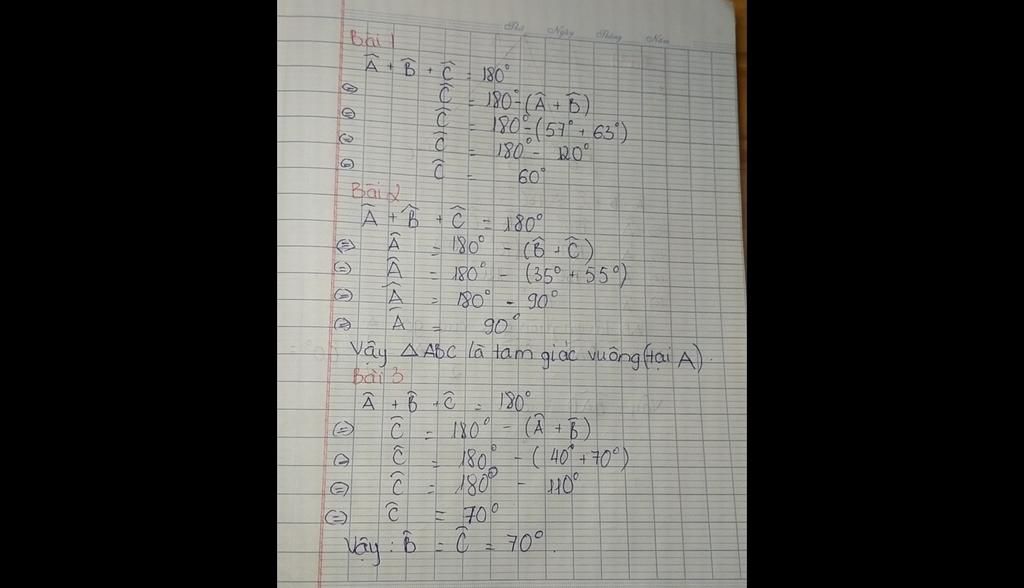 Thứ Ngày Tháng Năm
Bài 1
Â + B̂ + Ĉ = 180°
⇔ Ĉ = 180° - (Â + B̂)
⇔ Ĉ = 180° - (57° + 63°)
⇔ Ĉ = 180° - 120°
⇔ Ĉ = 60°
Bài 2
Â + B̂ + Ĉ = 180°
⇔ Â = 180° - (B̂ + Ĉ)
⇔ Â = 180° - (35° + 55°)
⇔ Â = 180° - 90°
⇔ Â = 90°
Vậy △ABC là tam giác vuông (tại A).
Bài 3
Â + B̂ + Ĉ = 180°
⇔ Ĉ = 180° - (Â + B̂)
⇔ Ĉ = 180° - (40° + 70°)
⇔ Ĉ = 180° - 110°
⇔ Ĉ = 70°
Vậy: B̂ = Ĉ = 70°.